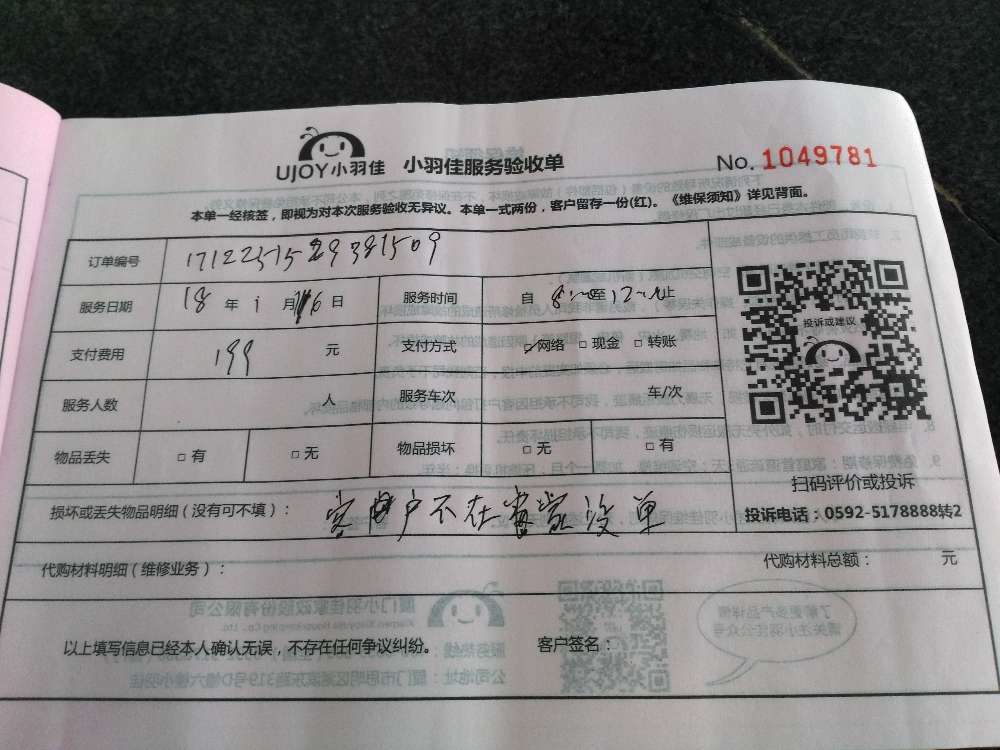 UJOY小羽佳 小羽佳服务验收单 No. 1049781
本单一经核签，即视为对本次服务验收无异议。本单一式两份，客户留存一份(红)。《维保须知》详见背面。
订单编号
服务日期 18 年 1 月 16 日 服务时间 自 8:00 至 12:00 止
支付费用 199 元 支付方式 ☑网络 □现金 □转账
服务人数 人 服务车次 车/次
物品丢失 □有 □无 物品损坏 □无 □有
投诉或建议
扫码评价或投诉
投诉电话：0592-5178888转2
损坏或丢失物品明细（没有可不填）： 客户不在家没单
代购材料明细（维修业务）： 代购材料总额： 元
以上填写信息已经本人确认无误，不存在任何争议纠纷。 客户签名：